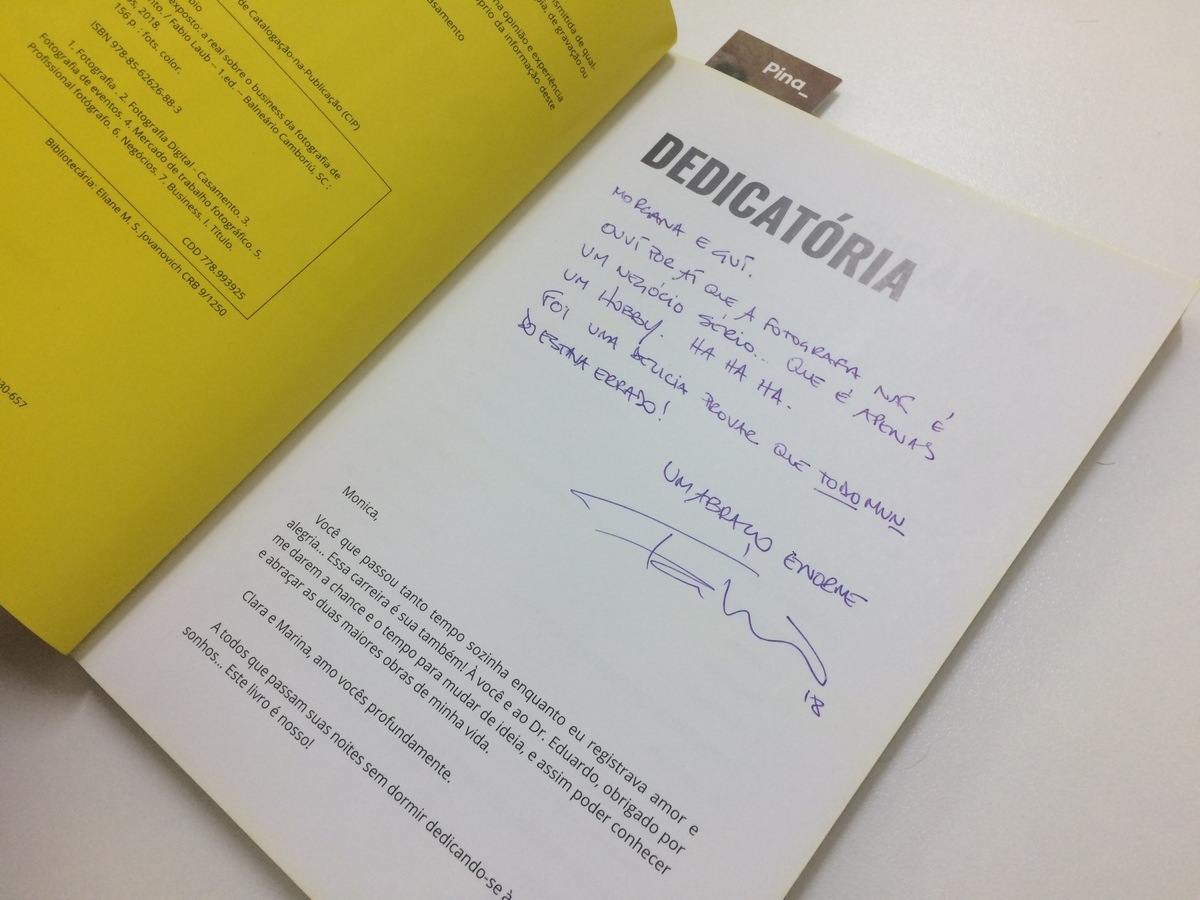 smitida de qual.
ia de gravação ou
na opinião e experiência
oprio da informação deste
asamento
de Catalogação-na-Publicação (CIP)
bio
exposto: a real sobre o business da fotografia de
nto. / Fabio Laub – 1.ed. – Balneário Camboriú, SC :
s, 2018.
156 p. : fots. color.
ISBN 978-85-62626-88-3
1. Fotografia . 2. Fotografia Digital - Casamento. 3.
Fotografia de eventos. 4. Mercado de trabalho fotográfico. 5.
Profissional fotógrafo. 6. Negócios. 7. Business. I. Título.
CDD 778.993925
Bibliotecária: Eliane M. S. Jovanovich CRB 9/1250
30-657
Pina_
DEDICATÓRIA
MORGANA E GUÍ.
OUVÍ POR AÍ QUE A FOTOGRAFIA NÃO É
UM NEGÓCIO SÉRIO... QUE É APENAS
UM HOBBY. HA HA HA.
FOI UMA DELICIA PROVAR QUE TODO MUN
DO ESTAVA ERRADO!
UM ABRAÇO ENORME
18
Monica,
Você que passou tanto tempo sozinha enquanto eu registrava amor e
alegria... Essa carreira é sua também! À você e ao Dr. Eduardo, obrigado por
me darem a chance e o tempo para mudar de ideia, e assim poder conhecer
e abraçar as duas maiores obras de minha vida.
Clara e Marina, amo vocês profundamente.
A todos que passam suas noites sem dormir dedicando-se à
sonhos... Este livro é nosso!